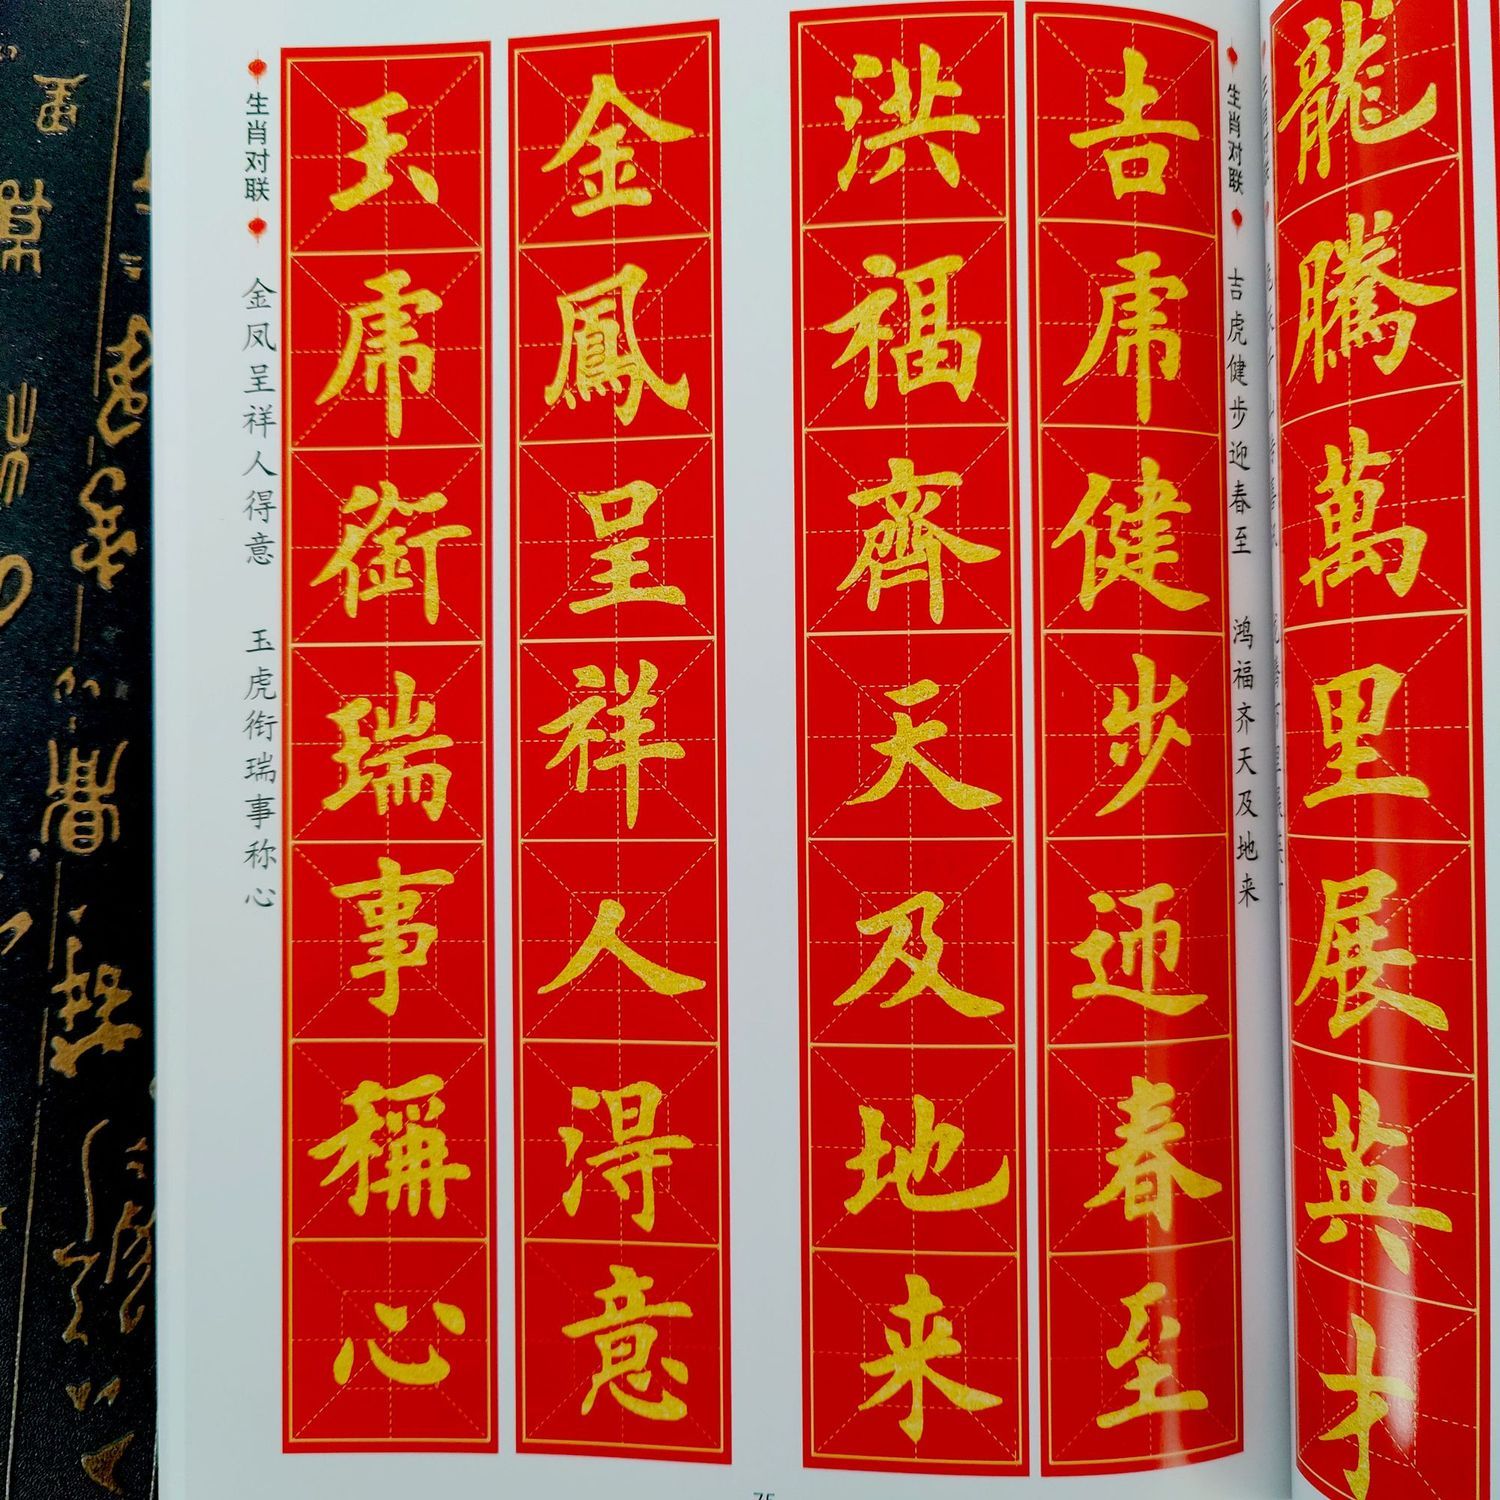 龍騰萬里展英才
生肖对联
吉虎健步迎春至 鸿福齐天及地来
吉虎健步迎春至
洪福齊天及地来
金鳳呈祥人得意
玉虎銜瑞事稱心
生肖对联
金凤呈祥人得意 玉虎衔瑞事称心
75